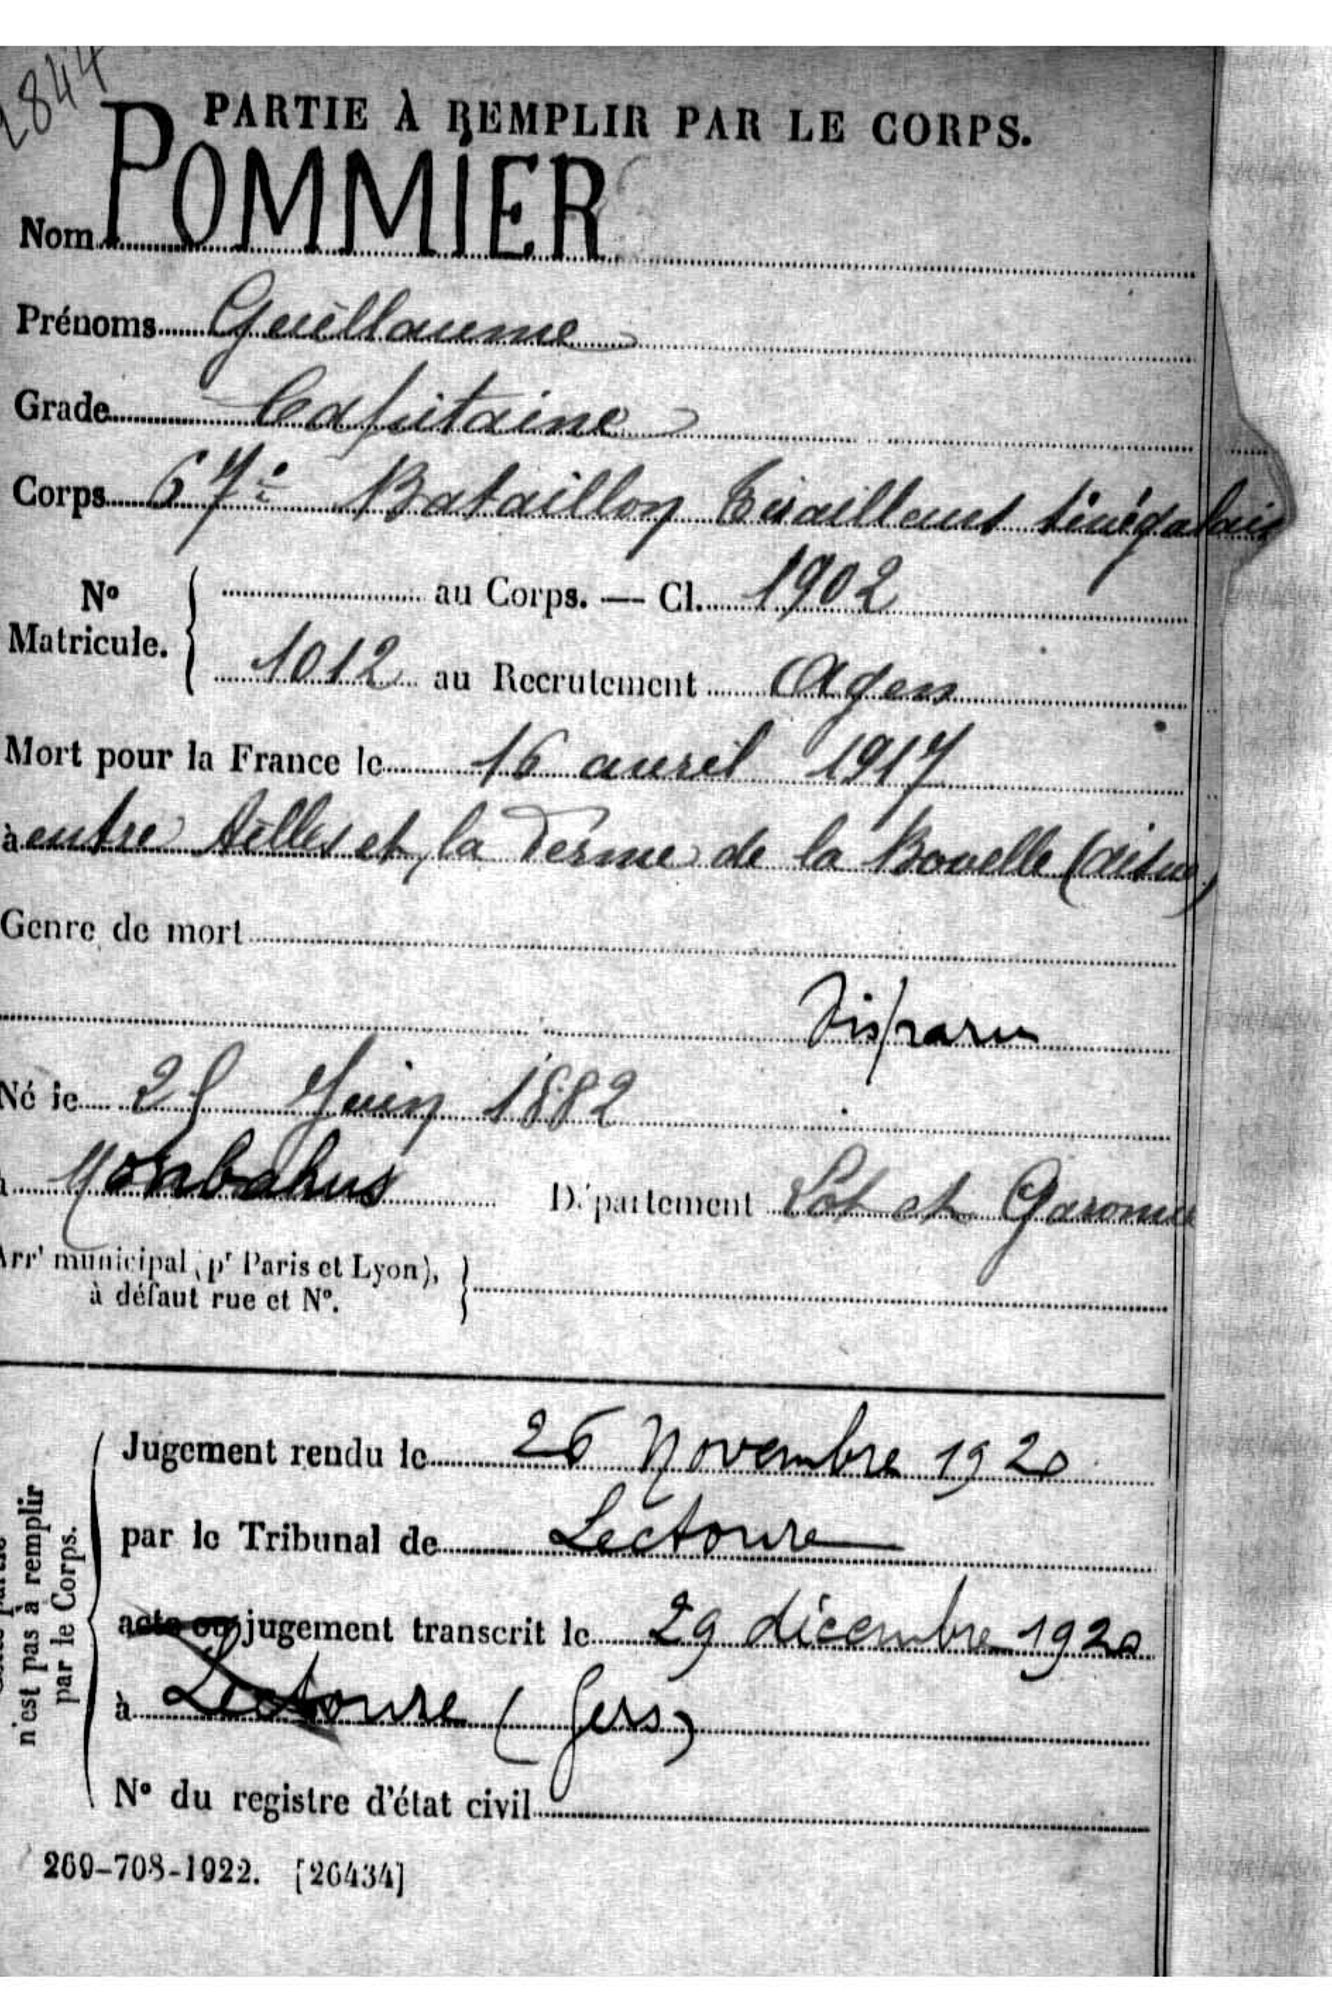 2844
PARTIE À REMPLIR PAR LE CORPS.
Nom POMMIER
Prénoms Guillaume
Grade Capitaine
Corps 67e Bataillon Tirailleurs Sénégalais
N° Matricule. { au Corps. — Cl. 1902
1012 au Recrutement Agen
Mort pour la France le 16 avril 1917
à entre Ailles et la Ferme de la Bovelle (Aisne)
Genre de mort
Disparu
Né le Juin 1882
à Monbahus Département Lot et Garonne
Arrt municipal (pr Paris et Lyon),
à défaut rue et N°.
n'est pas à remplir
par le Corps.
Jugement rendu le 26 Novembre 1920
par le Tribunal de Lectoure
acte ou jugement transcrit le 29 décembre 1920
à Lectoure (Gers)
N° du registre d'état civil
269-708-1922. [26434]